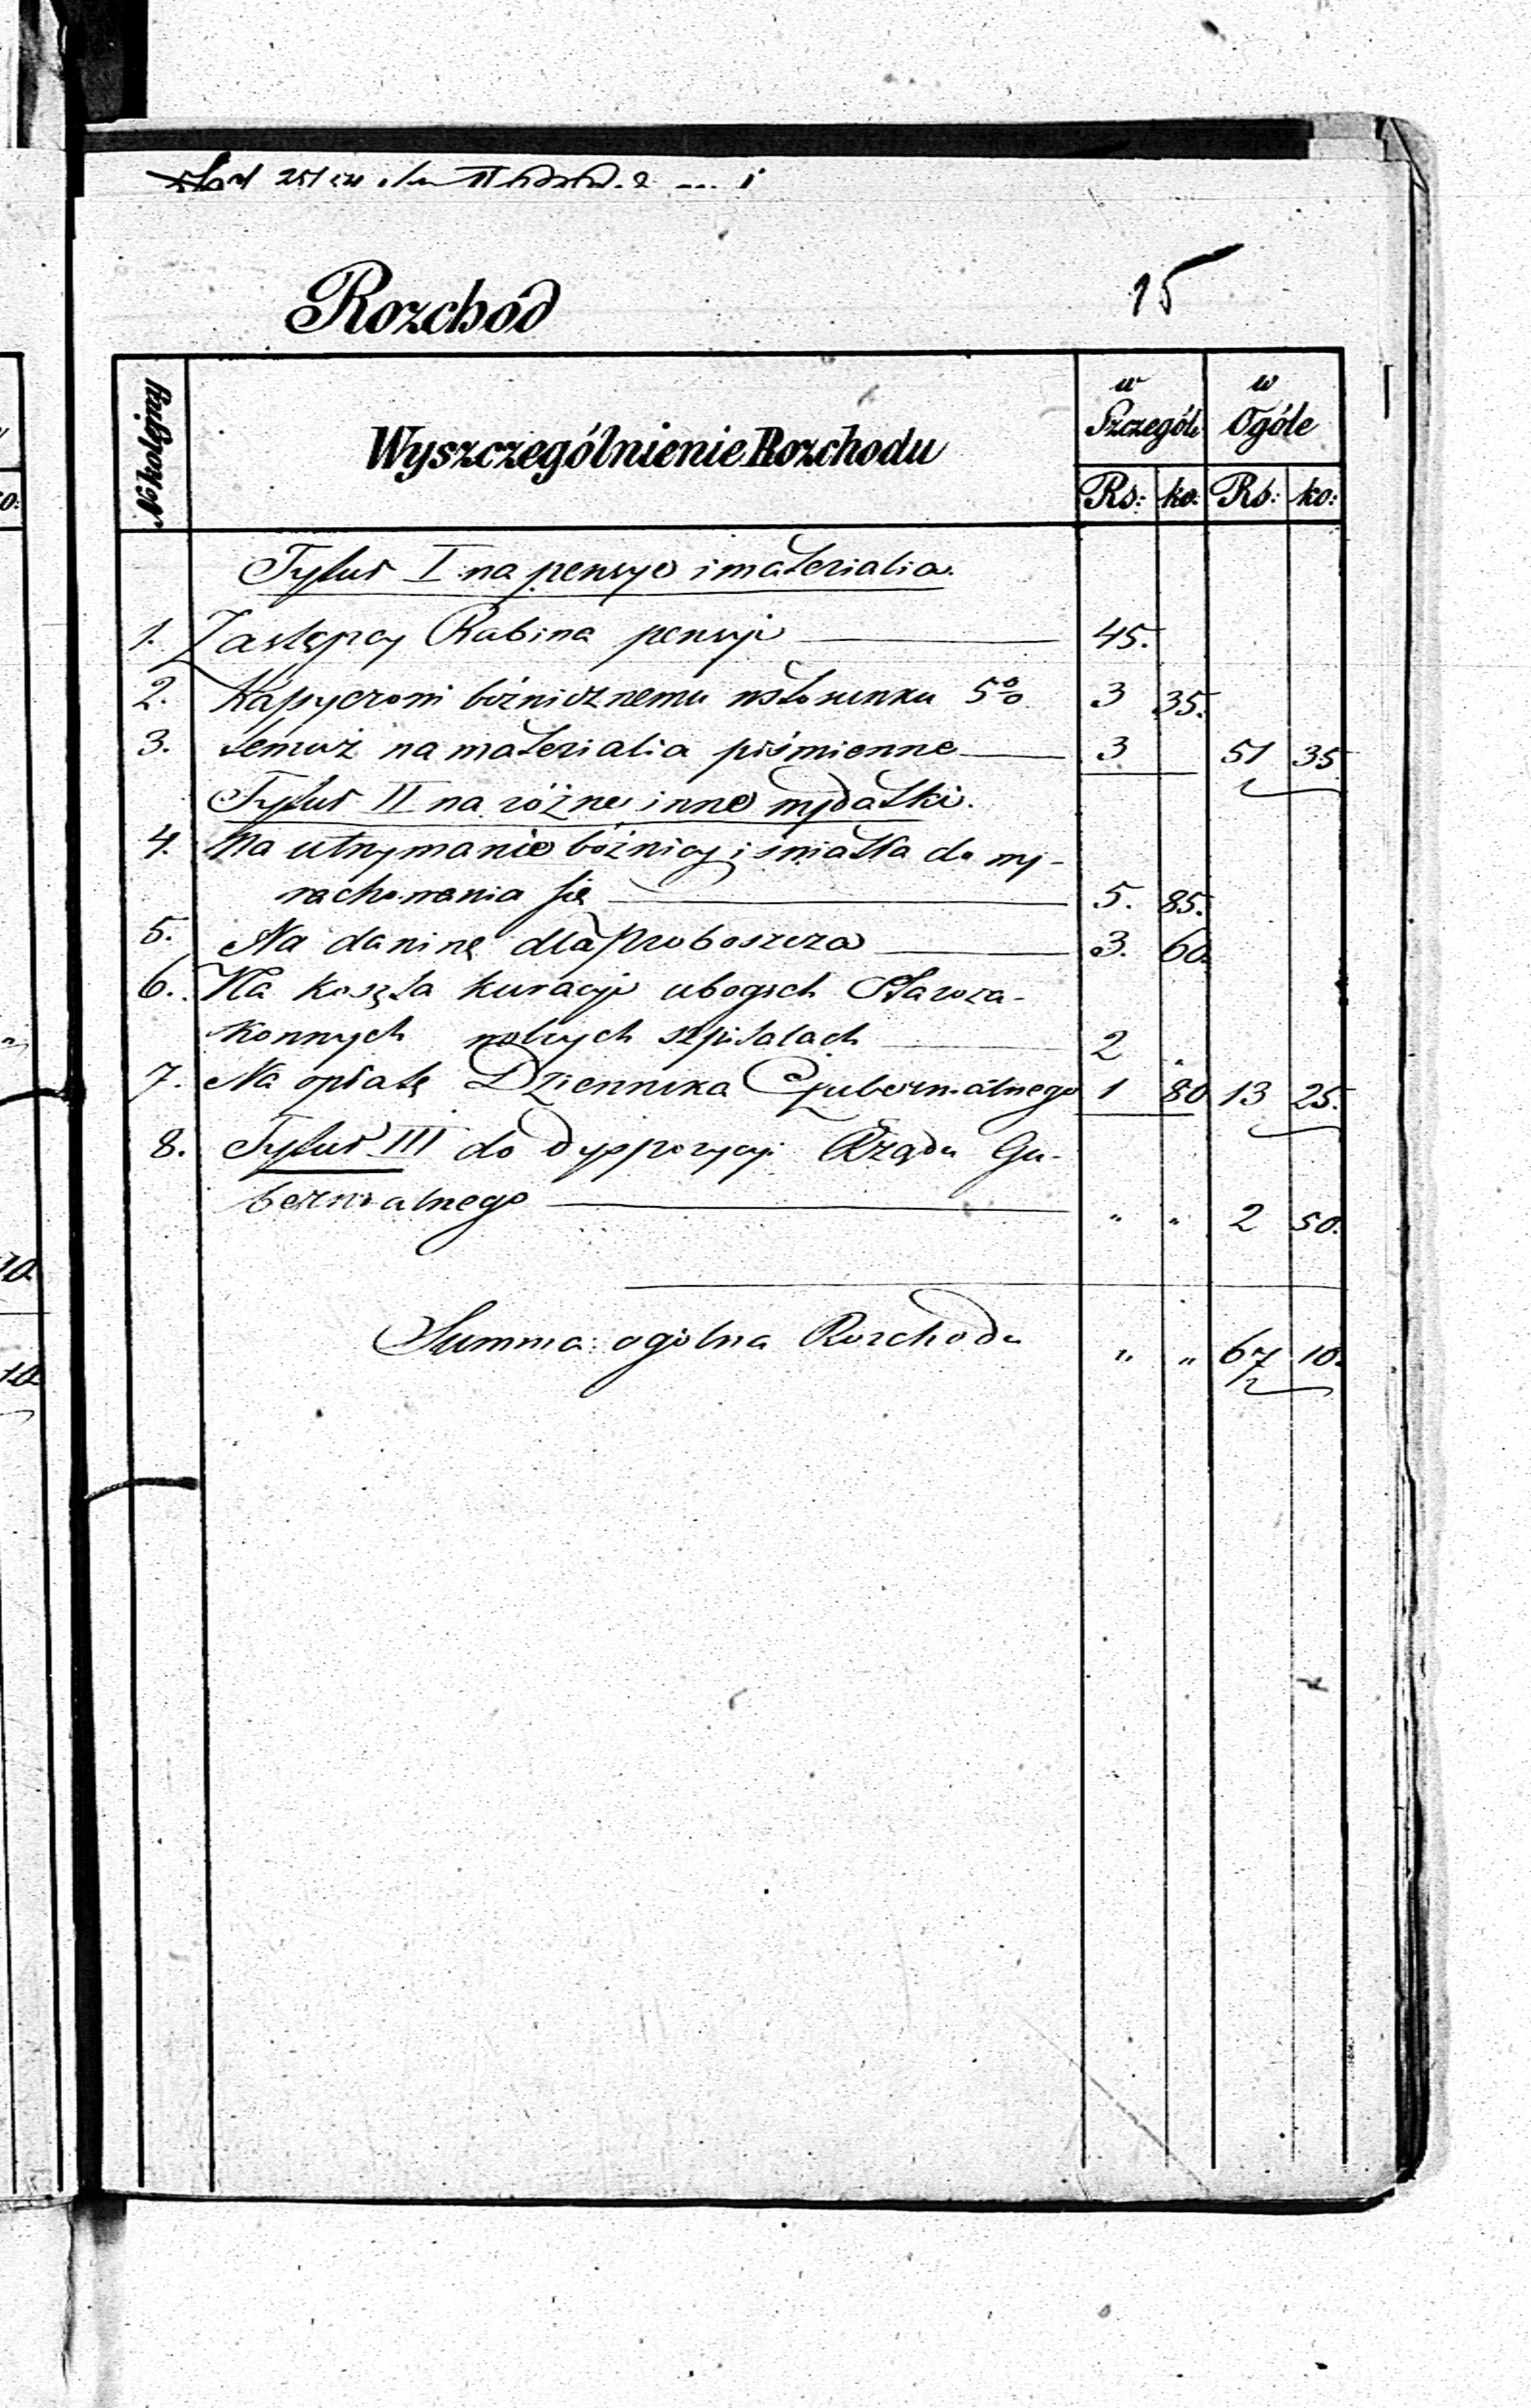 15
Rozchód
No kolejny
Wyszczególnienie Rozchodu
w Szczególe
w Ogóle
Rs: ko: Rs: ko:
Tytuł I na pensye i materialia.
1. Zastępcy Rabina pensyi 45.
2. Kassyerowi bóżnicznemu wstosunku 5% 3 35.
3. temuż na materialia piśmienne 3 51 35
Tytuł II na różne inne wydatki.
4. Na utrzymanie bóżnicy i światła do wy-
rachowania się 5. 85.
5. Na daninę dla Proboszcza 3. 60.
6. Na koszta kuracyi ubogich Staroza-
konnych w obcych szpitalach 2 "
7. Na opłatę Dziennika Gubernialnego 1 80 13 25.
8. Tytuł III do dyspozycyi Rządu Gu-
bernialnego " " 2 50.
Summa ogólna Rozchodu " " 67 10.